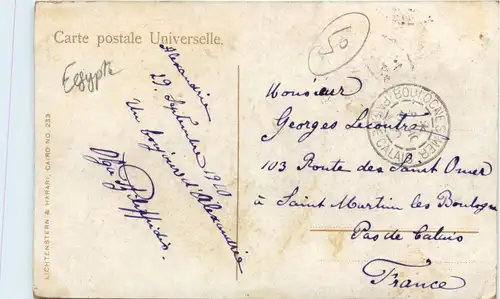 Carte postale Universelle.
Egypte
50
Alexandrie
29. Septembre 1910
Un bonjour d'Alexandrie
LICHTENSTERN & HARARI, CAIRO NO. 233
BOULOGNE S MER
PAS DE CALAIS
Monsieur
Georges Lecoutre
103 Route des Saint Omer
à Saint Martin les Boulogne
Pas de Calais
France